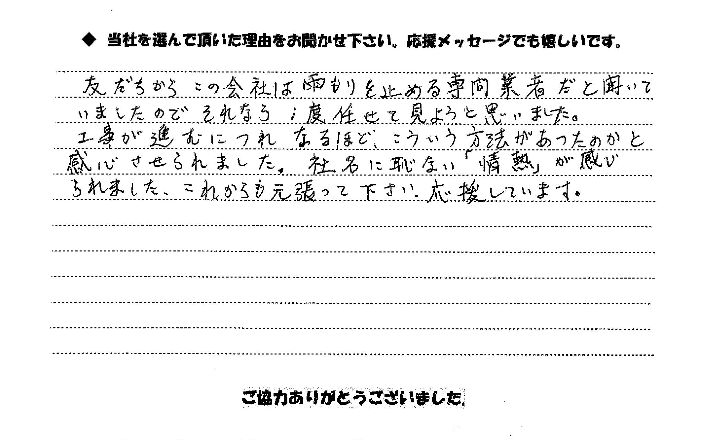 ◆ 当社を選んで頂いた理由をお聞かせ下さい。応援メッセージでも嬉しいです。
友だちからこの会社は雨もりを止める専門業者だと聞いて
いましたのでそれなら1度任せて見ようと思いました。
工事が進むにつれなるほど、こういう方法があったのかと
感心させられました。社名に恥ない「情熱」が感じ
られました、これからも元張って下さい、応援しています。
ご協力ありがとうございました。